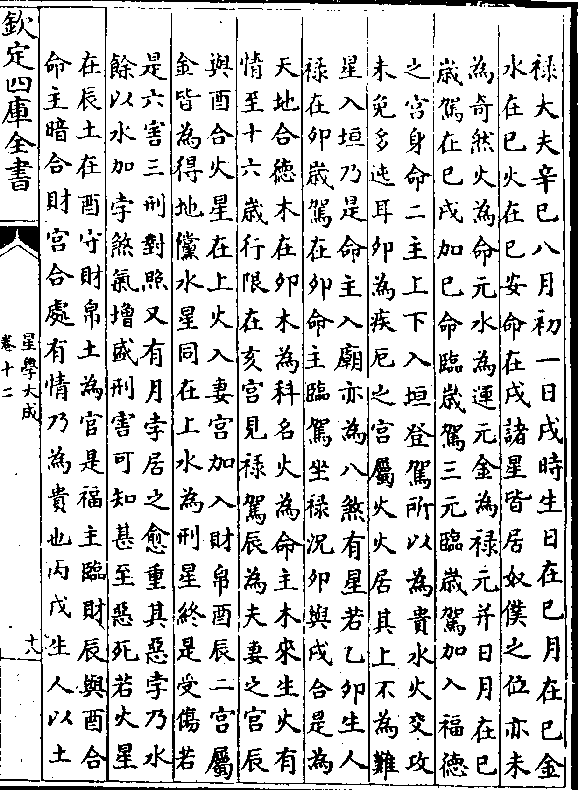 祿大夫辛巳八月初一日戌時生日在巳月在巳金
水在巳火在巳安命在戌諸星皆居奴僕之位亦未
為奇然火為命元水為運元金為祿元并日月在巳
歲駕在巳戌加巳命臨歲駕三元臨歲駕加入福德
之宮身命二主上下入垣登駕所以為貴水火交攻
未免多迍耳卯為疾厄之宮屬火火居其上不為難
星入垣乃是命主入廟亦為八煞有星若乙卯生人
祿在卯歲駕在卯命主臨駕坐祿況卯與戌合是為
天地合德木在卯木為科名火為命主木來生火有
情至十六歲行限在亥宮見祿駕辰為夫妻之宮辰
與酉合火星在上火入妻宮加入財帛酉辰二宮屬
金皆為得地儻水星同在上水為刑星終是受傷若
是六害三刑對照又有月孛居之愈重其惡孛乃水
餘以水加孛煞氣增盛刑害可知甚至惡死若火星
在辰土在酉守財帛土為官是福主臨財辰與酉合
命主暗合財宮合處有情乃為貴也丙戌生人以土
欽定四庫全書
星學大成
卷十二
十八